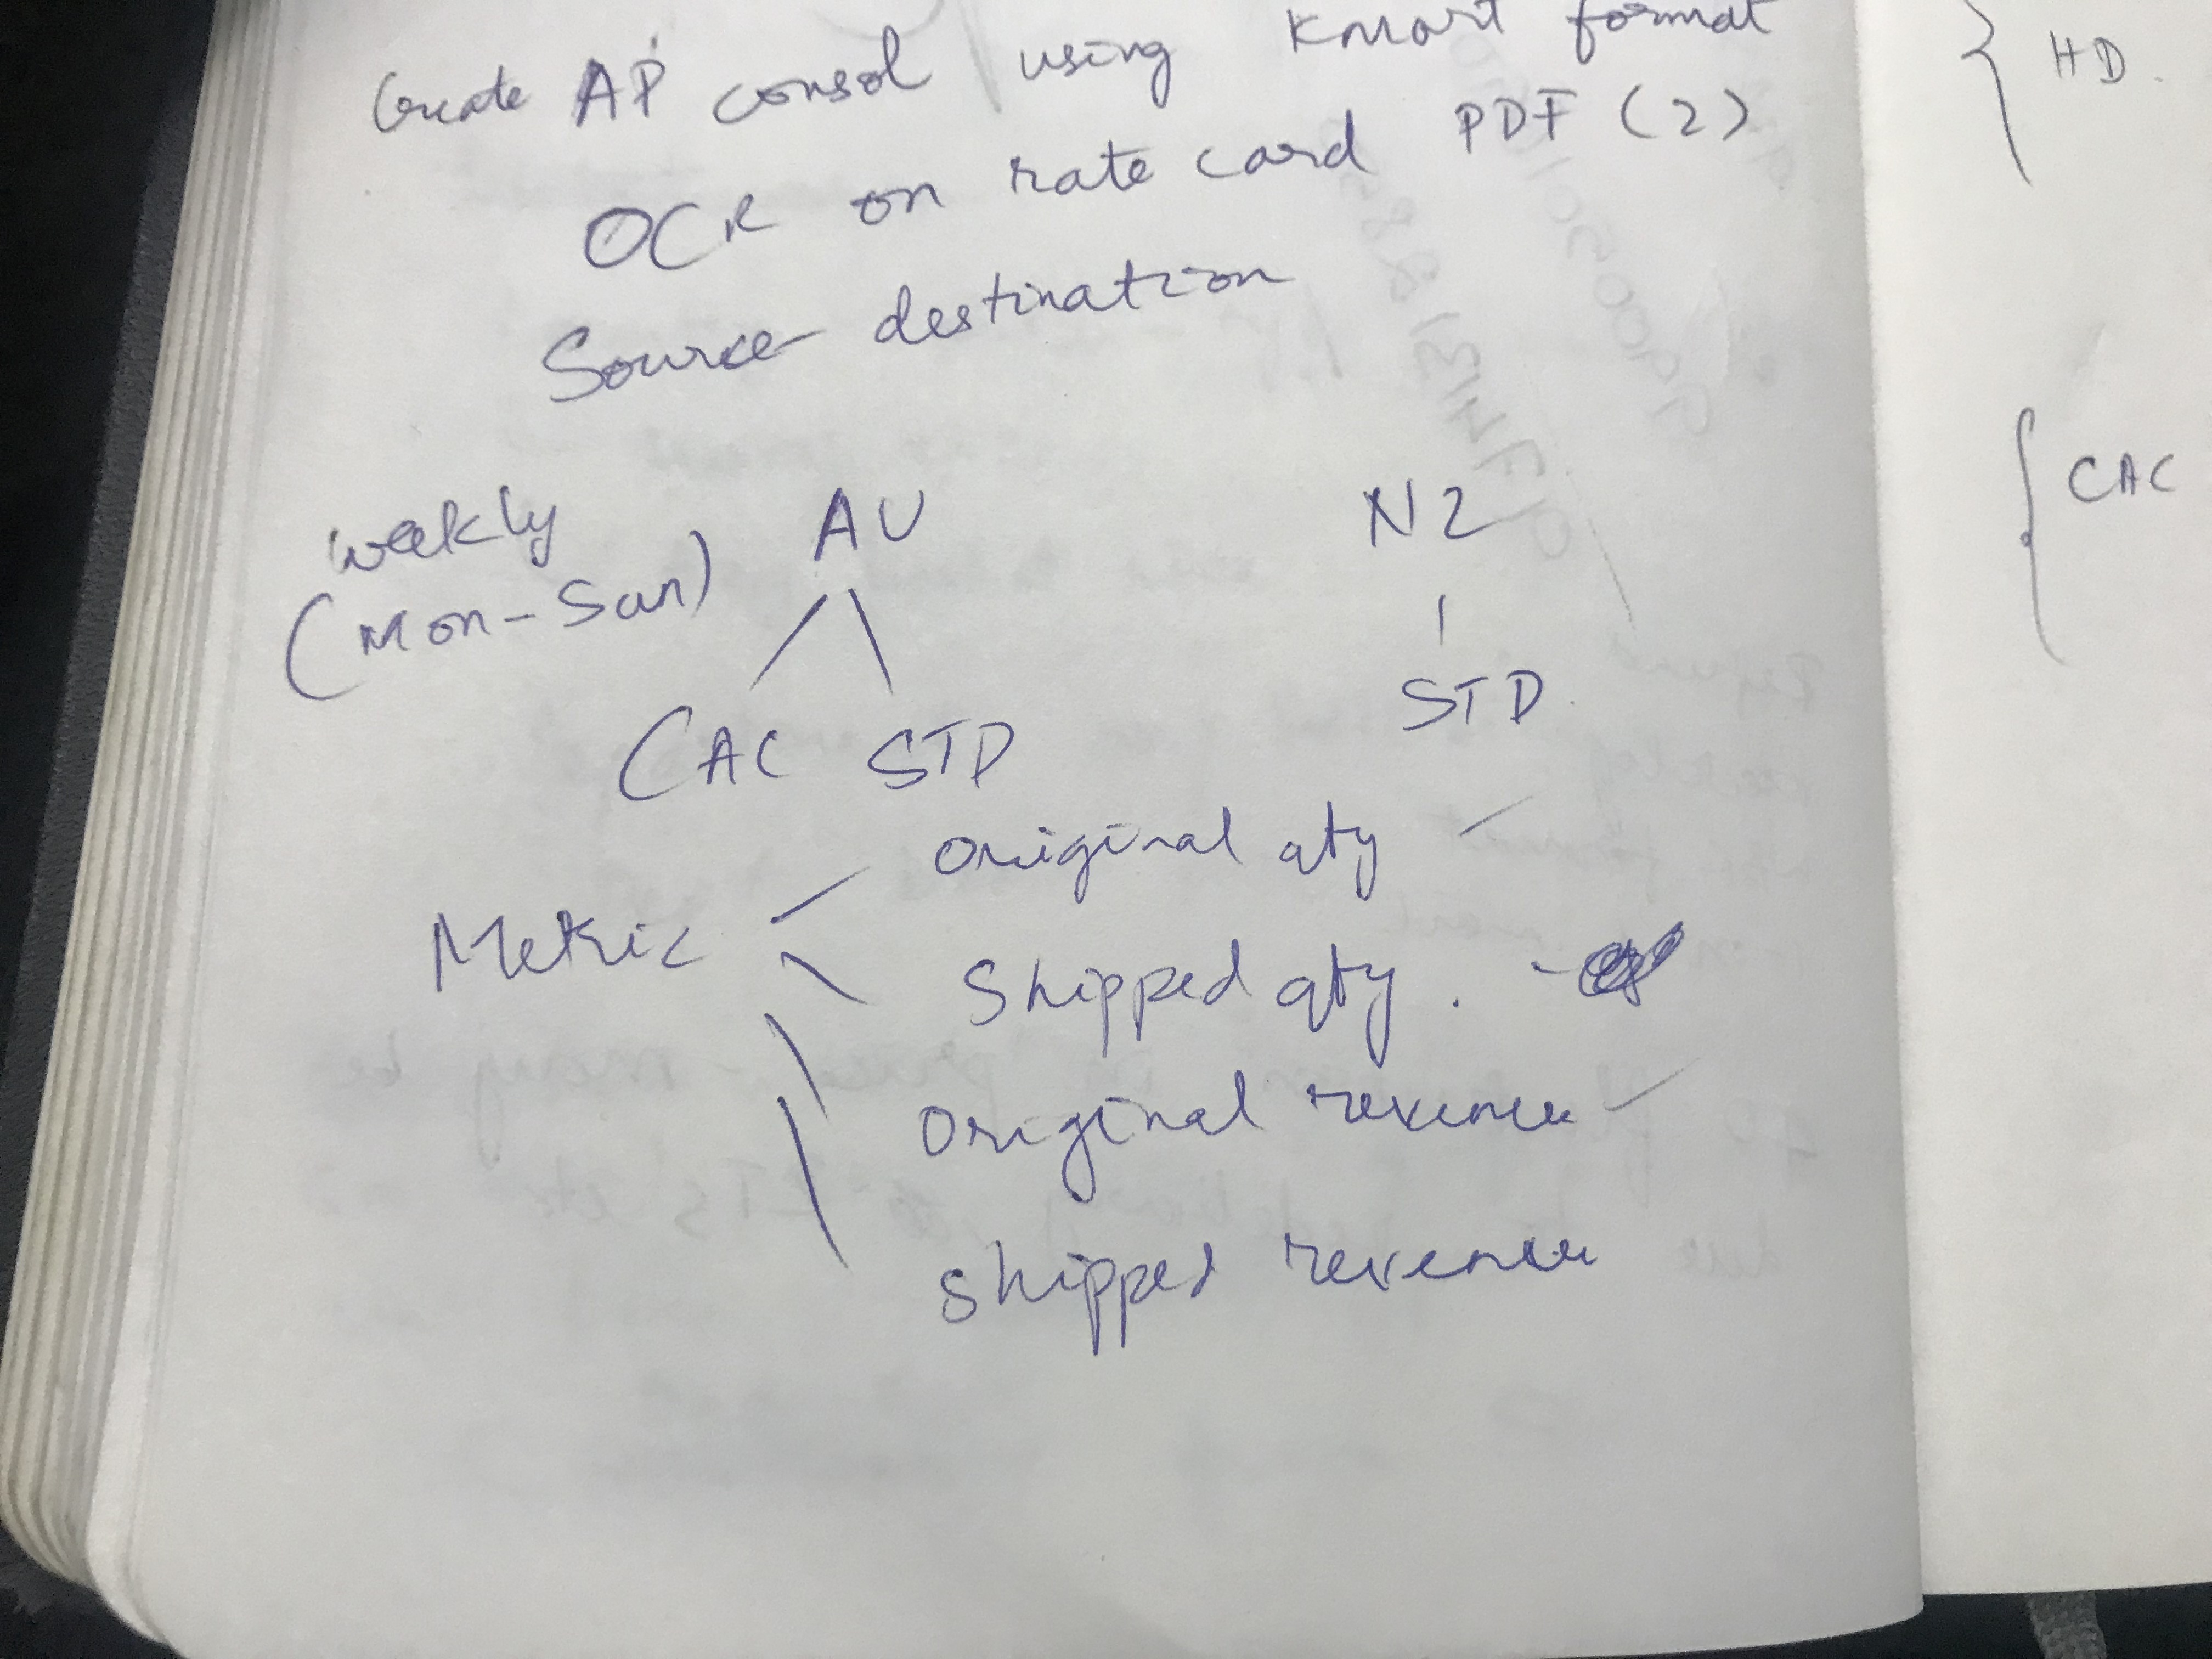 Create AP consol using Kmart format
OCR on rate card PDF (2)
Source destination
weekly
(Mon-Sun)
AU
NZ
CAC STD
STD.
Metric
Original qty
Shipped qty.
Original revenue
Shipped revenue
HD.
CAC